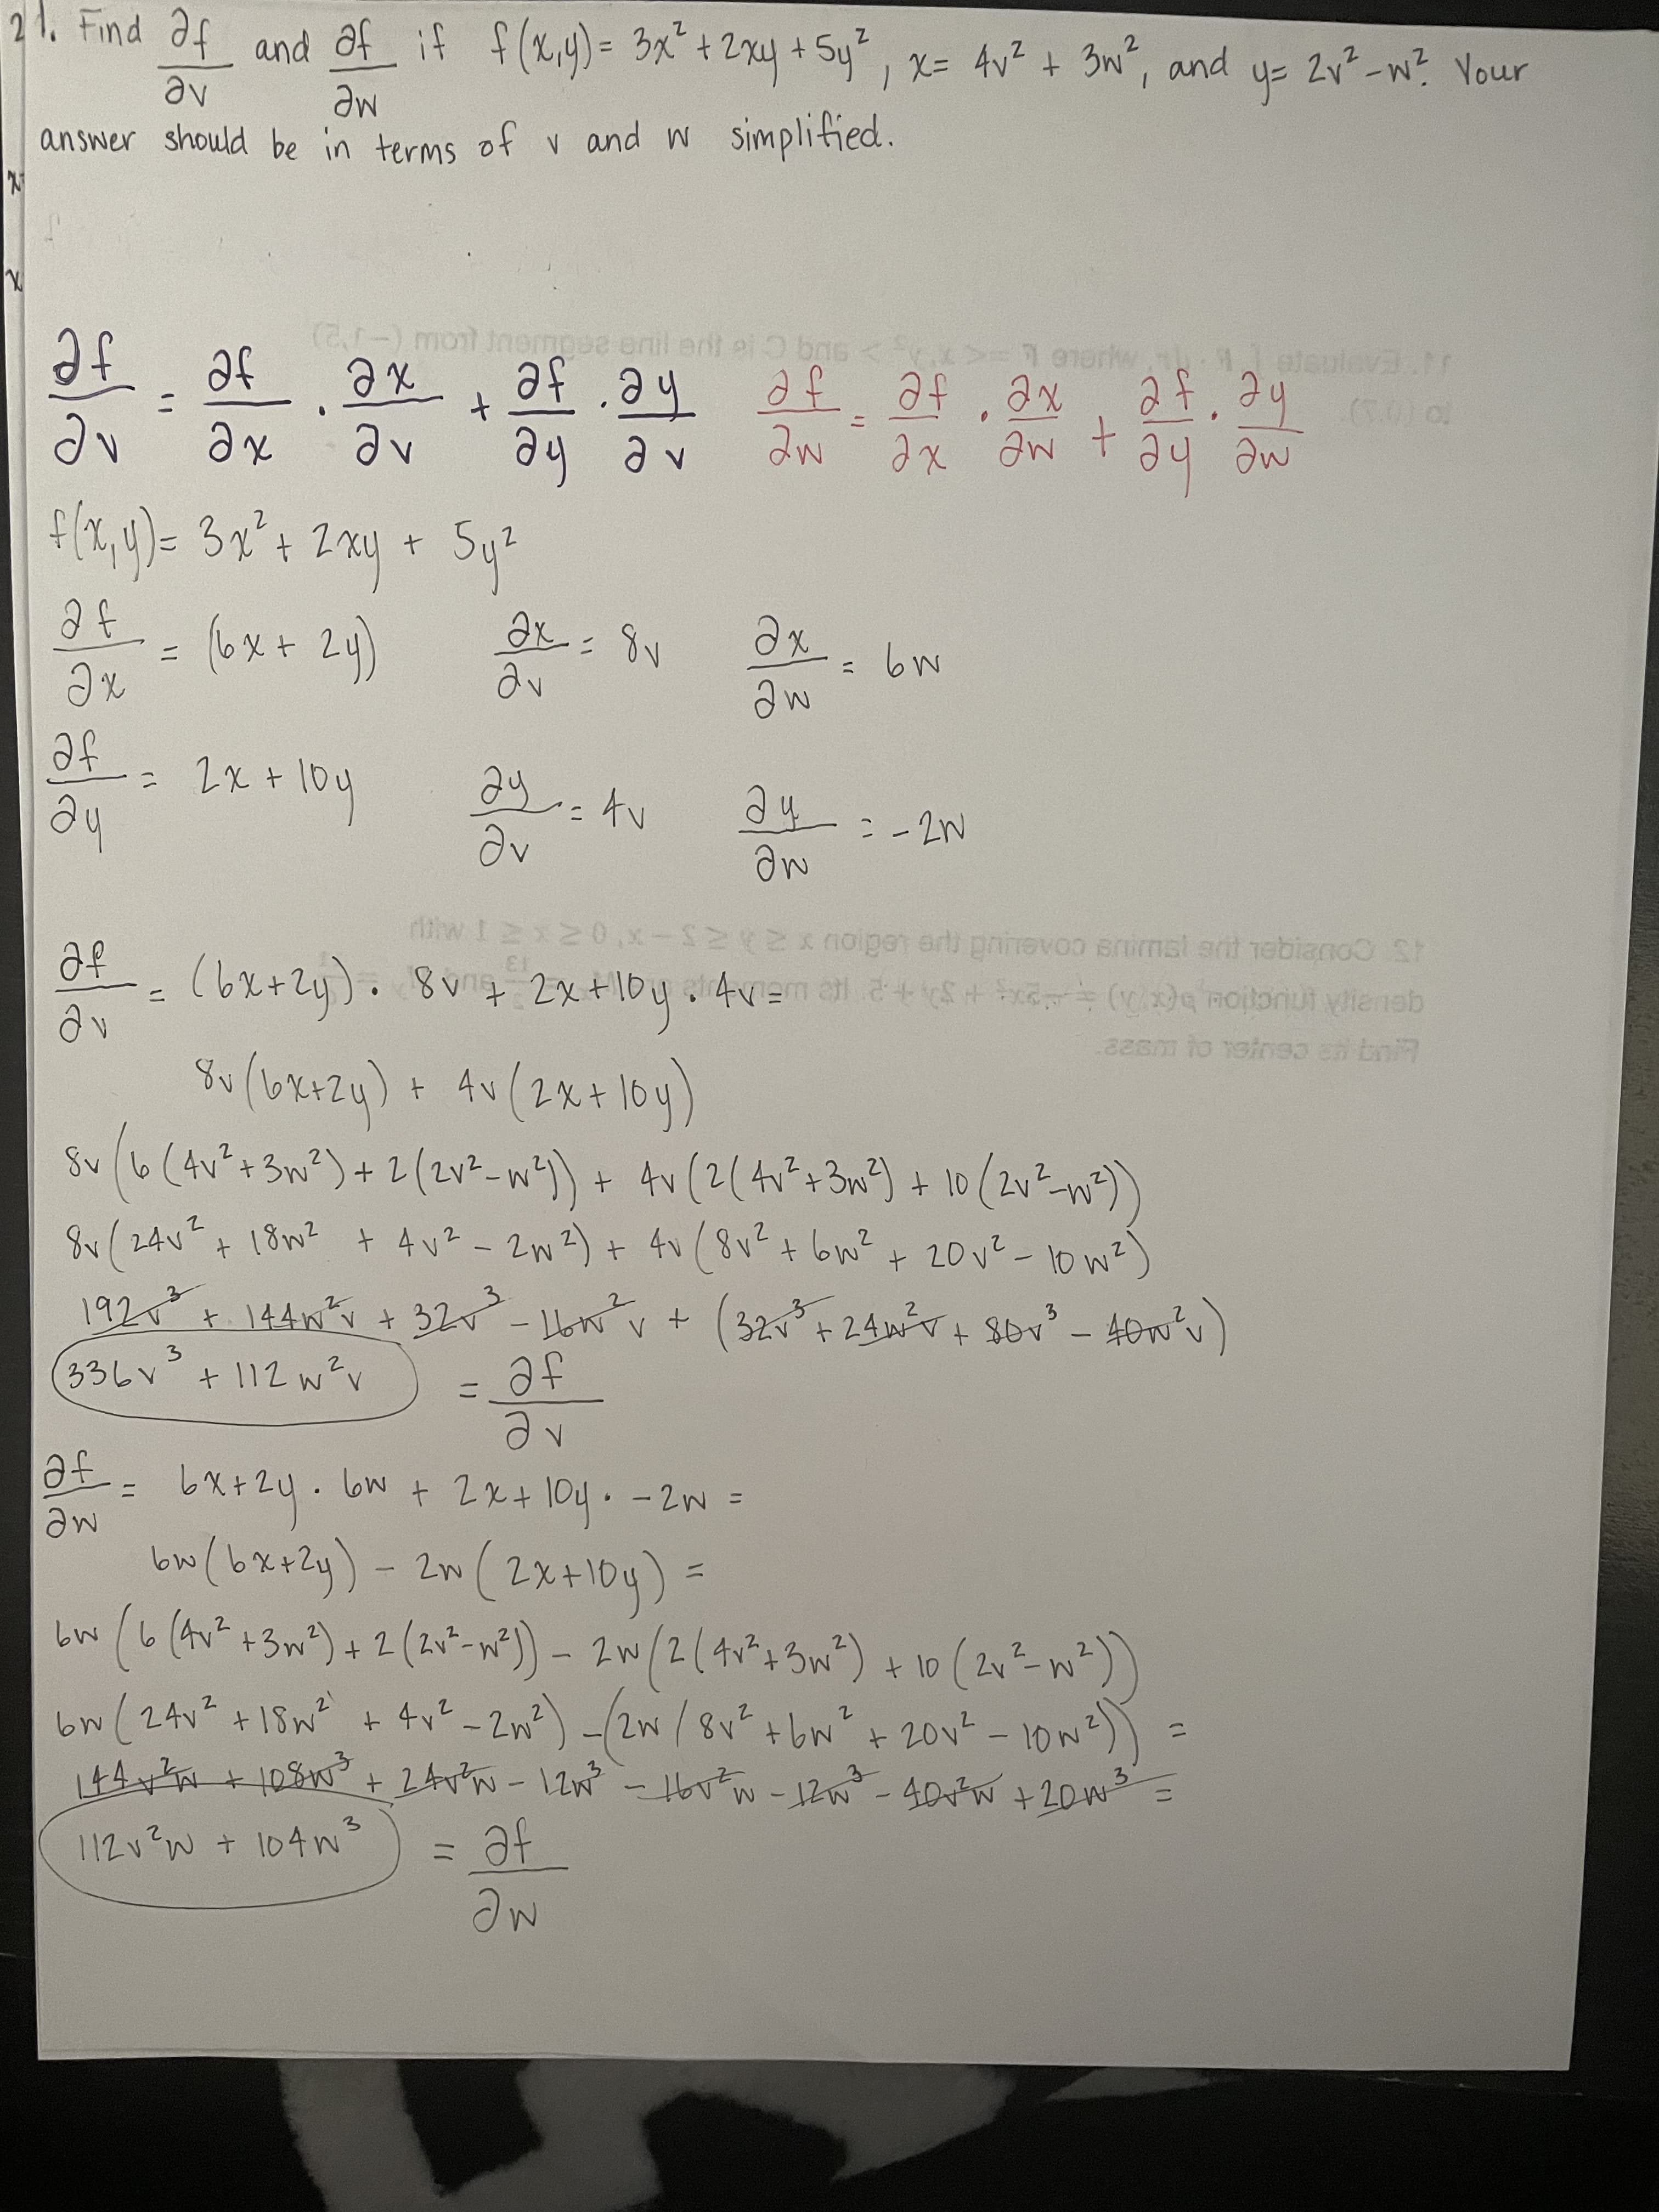 21. Find ∂f/∂v and ∂f/∂w if f(x,y) = 3x² + 2xy + 5y², x = 4v² + 3w², and y = 2v² - w². Your
answer should be in terms of v and w simplified.
x
x
∂f/∂v = ∂f/∂x · ∂x/∂v + ∂f/∂y · ∂y/∂v   ∂f/∂w = ∂f/∂x · ∂x/∂w + ∂f/∂y · ∂y/∂w
f(x,y) = 3x² + 2xy + 5y²
∂f/∂x = (6x + 2y)   ∂x/∂v = 8v   ∂x/∂w = 6w
∂f/∂y = 2x + 10y   ∂y/∂v = 4v   ∂y/∂w = -2w
∂f/∂v = (6x+2y) · 8v + 2x+10y · 4v =
8v(6x+2y) + 4v(2x+10y)
8v(6(4v²+3w²) + 2(2v²-w²)) + 4v(2(4v²+3w²) + 10(2v²-w²))
8v(24v² + 18w² + 4v² - 2w²) + 4v(8v² + 6w² + 20v² - 10w²)
192v³ + 144w²v + 32v³ - 16w²v + (32v³ + 24w²v + 80v³ - 40w²v)
336v³ + 112w²v = ∂f/∂v
∂f/∂w = 6x+2y · 6w + 2x+10y · -2w =
6w(6x+2y) - 2w(2x+10y) =
6w(6(4v²+3w²) + 2(2v²-w²)) - 2w(2(4v²+3w²) + 10(2v²-w²))
6w(24v² + 18w² + 4v² - 2w²) - (2w(8v² + 6w² + 20v² - 10w²)) =
144v²w + 108w³ + 24v²w - 12w³ - 16v²w - 12w³ - 40v²w + 20w³ =
112v²w + 104w³ = ∂f/∂w